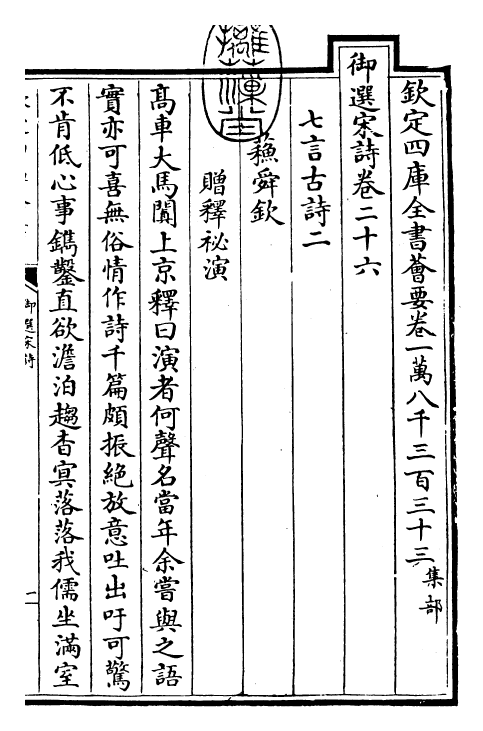 欽定四庫全書薈要卷一萬八千三百三十三集部
御選宋詩卷二十六
七言古詩二
蘇舜欽
贈釋祕演
髙車大馬闐上京釋曰演者何聲名當年余嘗與之語
實亦可喜無俗情作詩千篇頗振絶放意吐出吁可驚
不肯低心事鐫鑿直欲澹泊趨杳㝠落落我儒坐滿室
御選宋詩
一